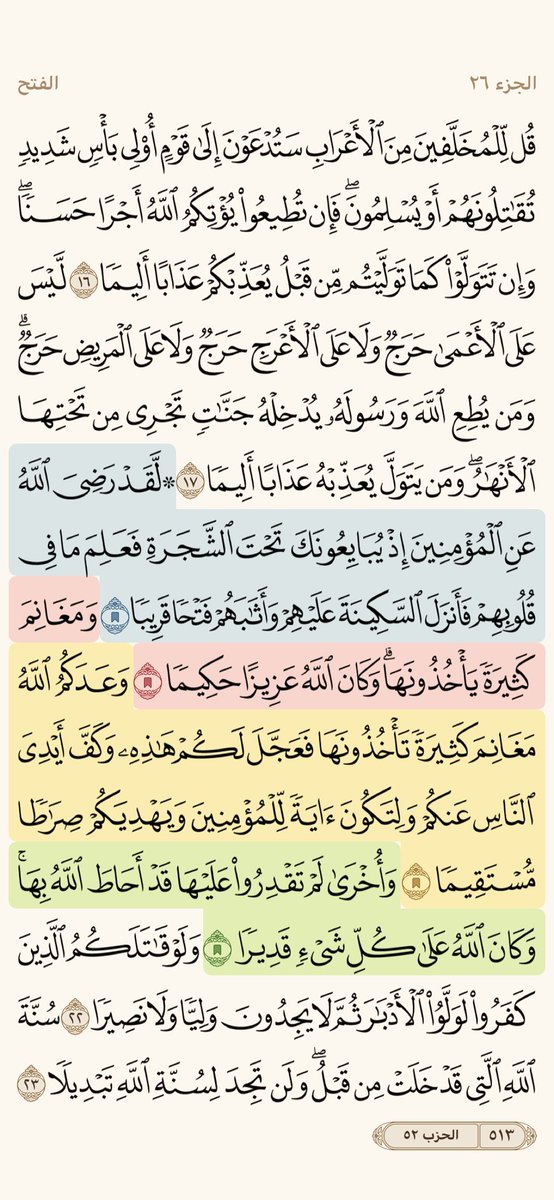 الجزء ٢٦
الفتح
قُل لِّلْمُخَلَّفِينَ مِنَ ٱلْأَعْرَابِ سَتُدْعَوْنَ إِلَىٰ قَوْمٍ أُو۟لِى بَأْسٍ شَدِيدٍ
تُقَـٰتِلُونَهُمْ أَوْ يُسْلِمُونَ ۖ فَإِن تُطِيعُوا۟ يُؤْتِكُمُ ٱللَّهُ أَجْرًا حَسَنًا ۖ
وَإِن تَتَوَلَّوْا۟ كَمَا تَوَلَّيْتُم مِّن قَبْلُ يُعَذِّبْكُمْ عَذَابًا أَلِيمًا ١٦ لَّيْسَ
عَلَى ٱلْأَعْمَىٰ حَرَجٌ وَلَا عَلَى ٱلْأَعْرَجِ حَرَجٌ وَلَا عَلَى ٱلْمَرِيضِ حَرَجٌ ۗ
وَمَن يُطِعِ ٱللَّهَ وَرَسُولَهُۥ يُدْخِلْهُ جَنَّـٰتٍ تَجْرِى مِن تَحْتِهَا
ٱلْأَنْهَـٰرُ ۖ وَمَن يَتَوَلَّ يُعَذِّبْهُ عَذَابًا أَلِيمًا ١٧ * لَّقَدْ رَضِىَ ٱللَّهُ
عَنِ ٱلْمُؤْمِنِينَ إِذْ يُبَايِعُونَكَ تَحْتَ ٱلشَّجَرَةِ فَعَلِمَ مَا فِى
قُلُوبِهِمْ فَأَنزَلَ ٱلسَّكِينَةَ عَلَيْهِمْ وَأَثَـٰبَهُمْ فَتْحًا قَرِيبًا وَمَغَانِمَ
كَثِيرَةً يَأْخُذُونَهَا ۗ وَكَانَ ٱللَّهُ عَزِيزًا حَكِيمًا وَعَدَكُمُ ٱللَّهُ
مَغَانِمَ كَثِيرَةً تَأْخُذُونَهَا فَعَجَّلَ لَكُمْ هَـٰذِهِۦ وَكَفَّ أَيْدِىَ
ٱلنَّاسِ عَنكُمْ وَلِتَكُونَ ءَايَةً لِّلْمُؤْمِنِينَ وَيَهْدِيَكُمْ صِرَٰطًا
مُّسْتَقِيمًا وَأُخْرَىٰ لَمْ تَقْدِرُوا۟ عَلَيْهَا قَدْ أَحَاطَ ٱللَّهُ بِهَا ۚ
وَكَانَ ٱللَّهُ عَلَىٰ كُلِّ شَىْءٍ قَدِيرًا وَلَوْ قَـٰتَلَكُمُ ٱلَّذِينَ
كَفَرُوا۟ لَوَلَّوُا۟ ٱلْأَدْبَـٰرَ ثُمَّ لَا يَجِدُونَ وَلِيًّا وَلَا نَصِيرًا ٢٢ سُنَّةَ
ٱللَّهِ ٱلَّتِى قَدْ خَلَتْ مِن قَبْلُ ۖ وَلَن تَجِدَ لِسُنَّةِ ٱللَّهِ تَبْدِيلًا ٢٣
٥١٣ الحزب ٥٢